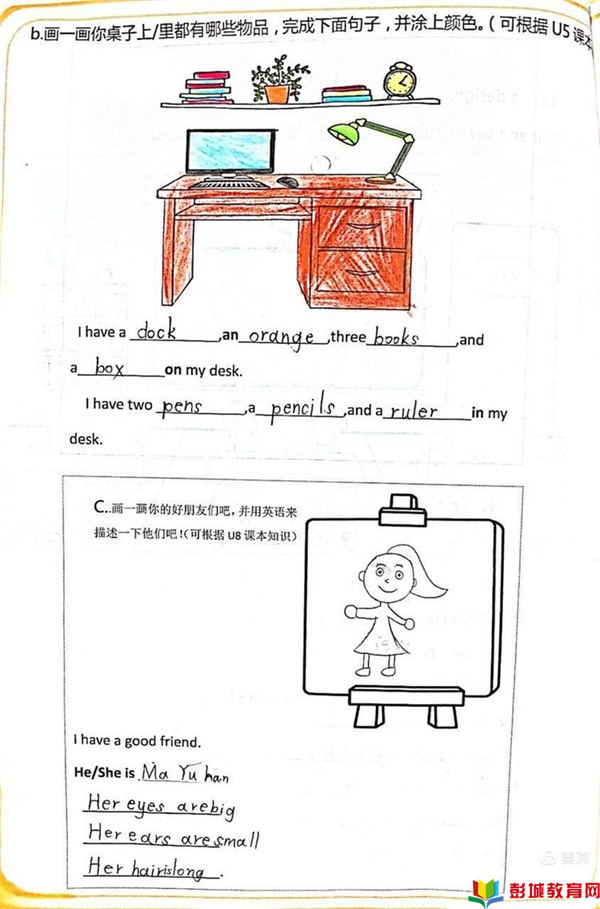 b.画一画你桌子上/里都有哪些物品，完成下面句子，并涂上颜色。(可根据 U5 课本
I have a dock ,an orange ,three books ,and
a box on my desk.
I have two pens ,a pencils ,and a ruler in my
desk.
C..画一画你的好朋友们吧，并用英语来
描述一下他们吧!(可根据 U8 课本知识)
I have a good friend.
He/She is Ma Yu han
Her eyes arebig
Her ears aresmall
Her hairislong .
美篇
彭城教育网